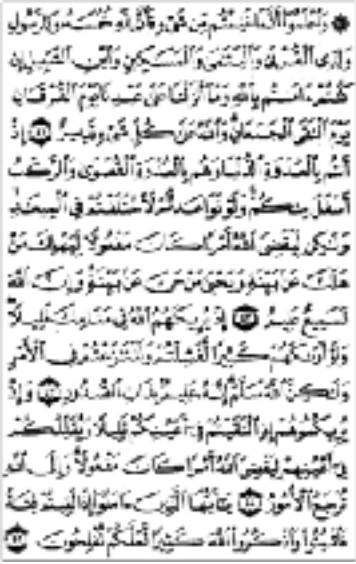 ۞ وَٱعْلَمُوٓا۟ أَنَّمَا غَنِمْتُم مِّن شَىْءٍ فَأَنَّ لِلَّهِ خُمُسَهُۥ وَلِلرَّسُولِ
وَلِذِى ٱلْقُرْبَىٰ وَٱلْيَتَٰمَىٰ وَٱلْمَسَٰكِينِ وَٱبْنِ ٱلسَّبِيلِ إِن
كُنتُمْ ءَامَنتُم بِٱللَّهِ وَمَآ أَنزَلْنَا عَلَىٰ عَبْدِنَا يَوْمَ ٱلْفُرْقَانِ
يَوْمَ ٱلْتَقَى ٱلْجَمْعَانِ وَٱللَّهُ عَلَىٰ كُلِّ شَىْءٍ قَدِيرٌ ٤١ إِذْ
أَنتُم بِٱلْعُدْوَةِ ٱلدُّنْيَا وَهُم بِٱلْعُدْوَةِ ٱلْقُصْوَىٰ وَٱلرَّكْبُ
أَسْفَلَ مِنكُمْ وَلَوْ تَوَاعَدتُّمْ لَٱخْتَلَفْتُمْ فِى ٱلْمِيعَٰدِ
وَلَٰكِن لِّيَقْضِىَ ٱللَّهُ أَمْرًا كَانَ مَفْعُولًا لِّيَهْلِكَ مَنْ
هَلَكَ عَنۢ بَيِّنَةٍ وَيَحْيَىٰ مَنْ حَىَّ عَنۢ بَيِّنَةٍ وَإِنَّ ٱللَّهَ
لَسَمِيعٌ عَلِيمٌ ٤٢ إِذْ يُرِيكَهُمُ ٱللَّهُ فِى مَنَامِكَ قَلِيلًا
وَلَوْ أَرَىٰكَهُمْ كَثِيرًا لَّفَشِلْتُمْ وَلَتَنَٰزَعْتُمْ فِى ٱلْأَمْرِ
وَلَٰكِنَّ ٱللَّهَ سَلَّمَ إِنَّهُۥ عَلِيمٌۢ بِذَاتِ ٱلصُّدُورِ ٤٣ وَإِذْ
يُرِيكُمُوهُمْ إِذِ ٱلْتَقَيْتُمْ فِىٓ أَعْيُنِكُمْ قَلِيلًا وَيُقَلِّلُكُمْ
فِىٓ أَعْيُنِهِمْ لِيَقْضِىَ ٱللَّهُ أَمْرًا كَانَ مَفْعُولًا وَإِلَى ٱللَّهِ
تُرْجَعُ ٱلْأُمُورُ ٤٤ يَٰٓأَيُّهَا ٱلَّذِينَ ءَامَنُوٓا۟ إِذَا لَقِيتُمْ فِئَةً
فَٱثْبُتُوا۟ وَٱذْكُرُوا۟ ٱللَّهَ كَثِيرًا لَّعَلَّكُمْ تُفْلِحُونَ ٤٥